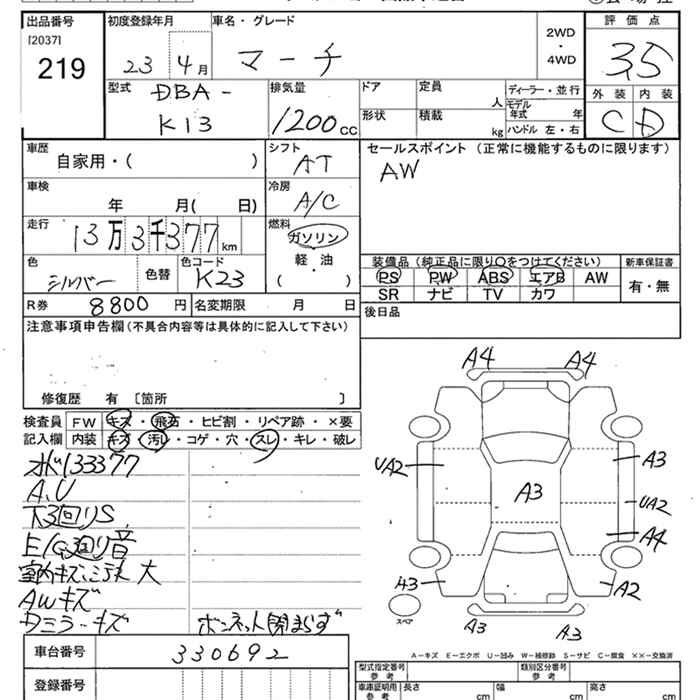 出品番号
[2037]
219
初度登録年月
23 4月
車名・グレード
マーチ
2WD
・
4WD
評価点
3.5
型式
DBA-
K13
排気量
1200cc
ドア
形状
定員 人
積載 kg
ディーラー・並行
モデル年式 年
ハンドル 左・右
外装 内装
C D
車歴
自家用・( )
シフト
AT
セールスポイント (正常に機能するものに限ります)
AW
車検
年 月( 日)
冷房
A/C
走行
13万3千377km
燃料
ガソリン
軽・油
( )
色
シルバー
色替
色コード
K23
装備品(純正品に限り○をつけてください)
PS PW ABS エアB AW
SR ナビ TV カワ
新車保証書
有・無
R券 8800円
名変期限 月 日
後日品
注意事項申告欄(不具合内容等は具体的に記入して下さい)
修復歴 有 〔箇所 〕
検査員記入欄
FW キズ・飛石・ヒビ割・リペア跡・×要
内装 キズ・汚レ・コゲ・穴・スレ・キレ・破レ
オドバ133377
A.U
下3回りS
E/G廻り音
室内キズ、ミゴレ大
AWキズ
Dミラーキズ
ボンネット閉まらず
A4 A4
UA2 A3
A3
UA2
A4
A3 A2
スペア
A3 A3
A-キズ E-エクボ U-凹み W-補修跡 S-サビ C-腐食 ××-交換済
車台番号
330692
登録番号
型式指定番号
参考
類別区分番号
参考
車庫証明用
参考
長さ cm
幅 cm
高さ cm